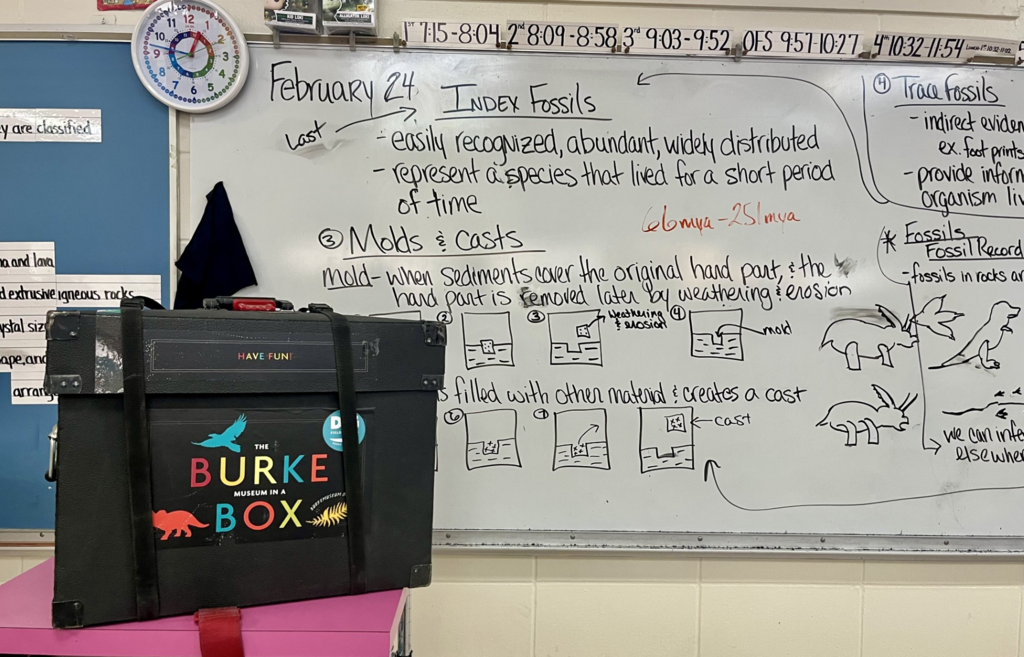 1ST 7:15-8:04
2nd 8:09-8:58
3rd 9:03-9:52
OFS 9:57-10:27
4th 10:32-11:54
12
1
2
3
4
5
6
7
8
9
10
11
y are classified
a and lava
d extrusive igneous rocks
ystal siz
ape, and
arrang
February 24
Last
INDEX Fossils
- easily recognized, abundant, widely distributed
- represent a species that lived for a short period
of time
66mya-251mya
③ Molds & Casts
mold- when sediments cover the original hard part, & the
hard part is removed later by weathering & erosion
②
③
weathering
& erosion
④
mold
s filled with other material & creates a cast
⑥
⑦
cast
④ Trace Fossils
- indirect eviden
ex. foot prints
- provide inform
organism liv
* Fossils
Fossil Record
- fossils in rocks ar
we can infe
elsewher
HAVE FUN!
THE
BURKE
MUSEUM IN A
BOX